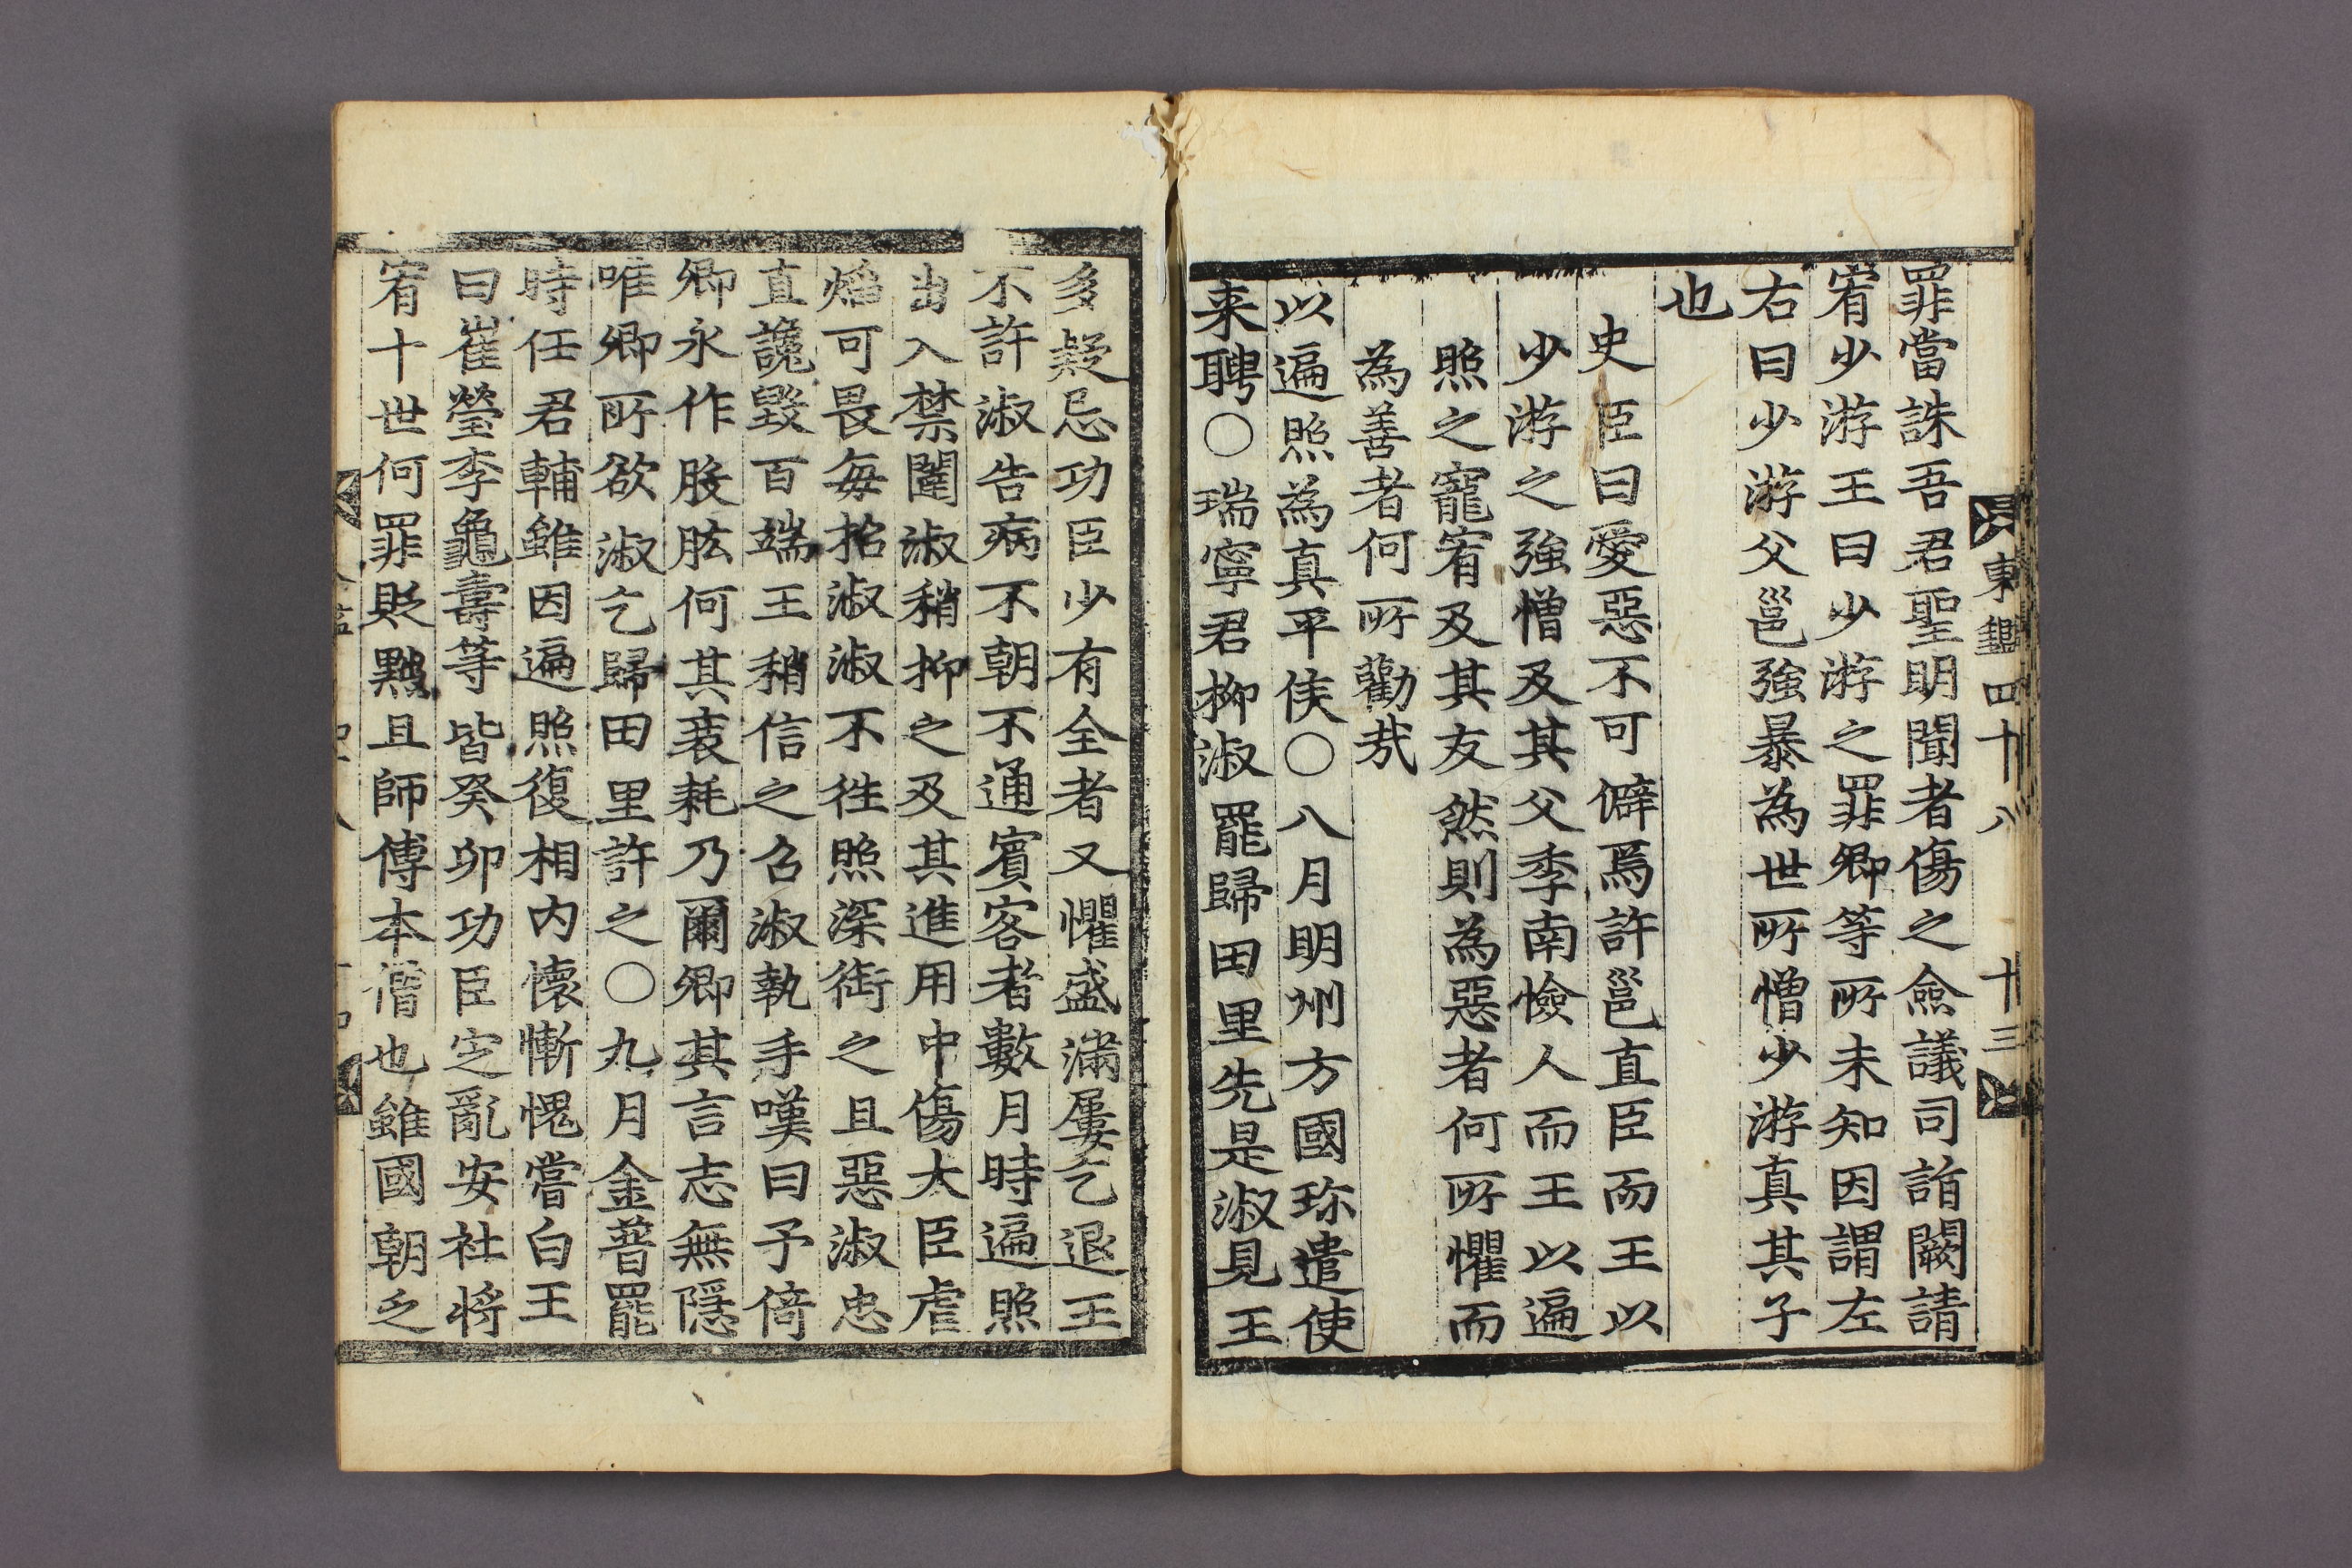 東鑑四十八
十三
罪當誅吾君聖明聞者傷之僉議司詣闕請
宥少游王曰少游之罪卿等所未知因謂左
右曰少游父邕強暴為世所憎少游真其子
也
史臣曰愛惡不可僻焉許邕直臣而王以
少游之強憎及其父李南憸人而王以遍
照之寵宥及其友然則為惡者何所懼而
為善者何所勸㢤
以遍照為真平侯○八月明州方國珎遣使
来聘○瑞寧君柳淑罷歸田里先是淑見王
多疑忌功臣少有全者又懼盛滿屢乞退王
不許淑告病不朝不通賓客者數月時遍照
出入禁闥淑稍抑之及其進用中傷大臣虐
焰可畏每招淑淑不徃照深銜之且惡淑忠
直讒毀百端王稍信之召淑執手嘆曰予倚
卿永作股肱何其衰耗乃爾卿其言志無隱
唯卿所欲淑乞歸田里許之○九月金普罷
時任君輔雖因遍照復相内懷慚愧嘗白王
曰崔瑩李龜壽等皆癸卯功臣定亂安社将
宥十世何罪貶黜且師傅本僧也雖國朝乏